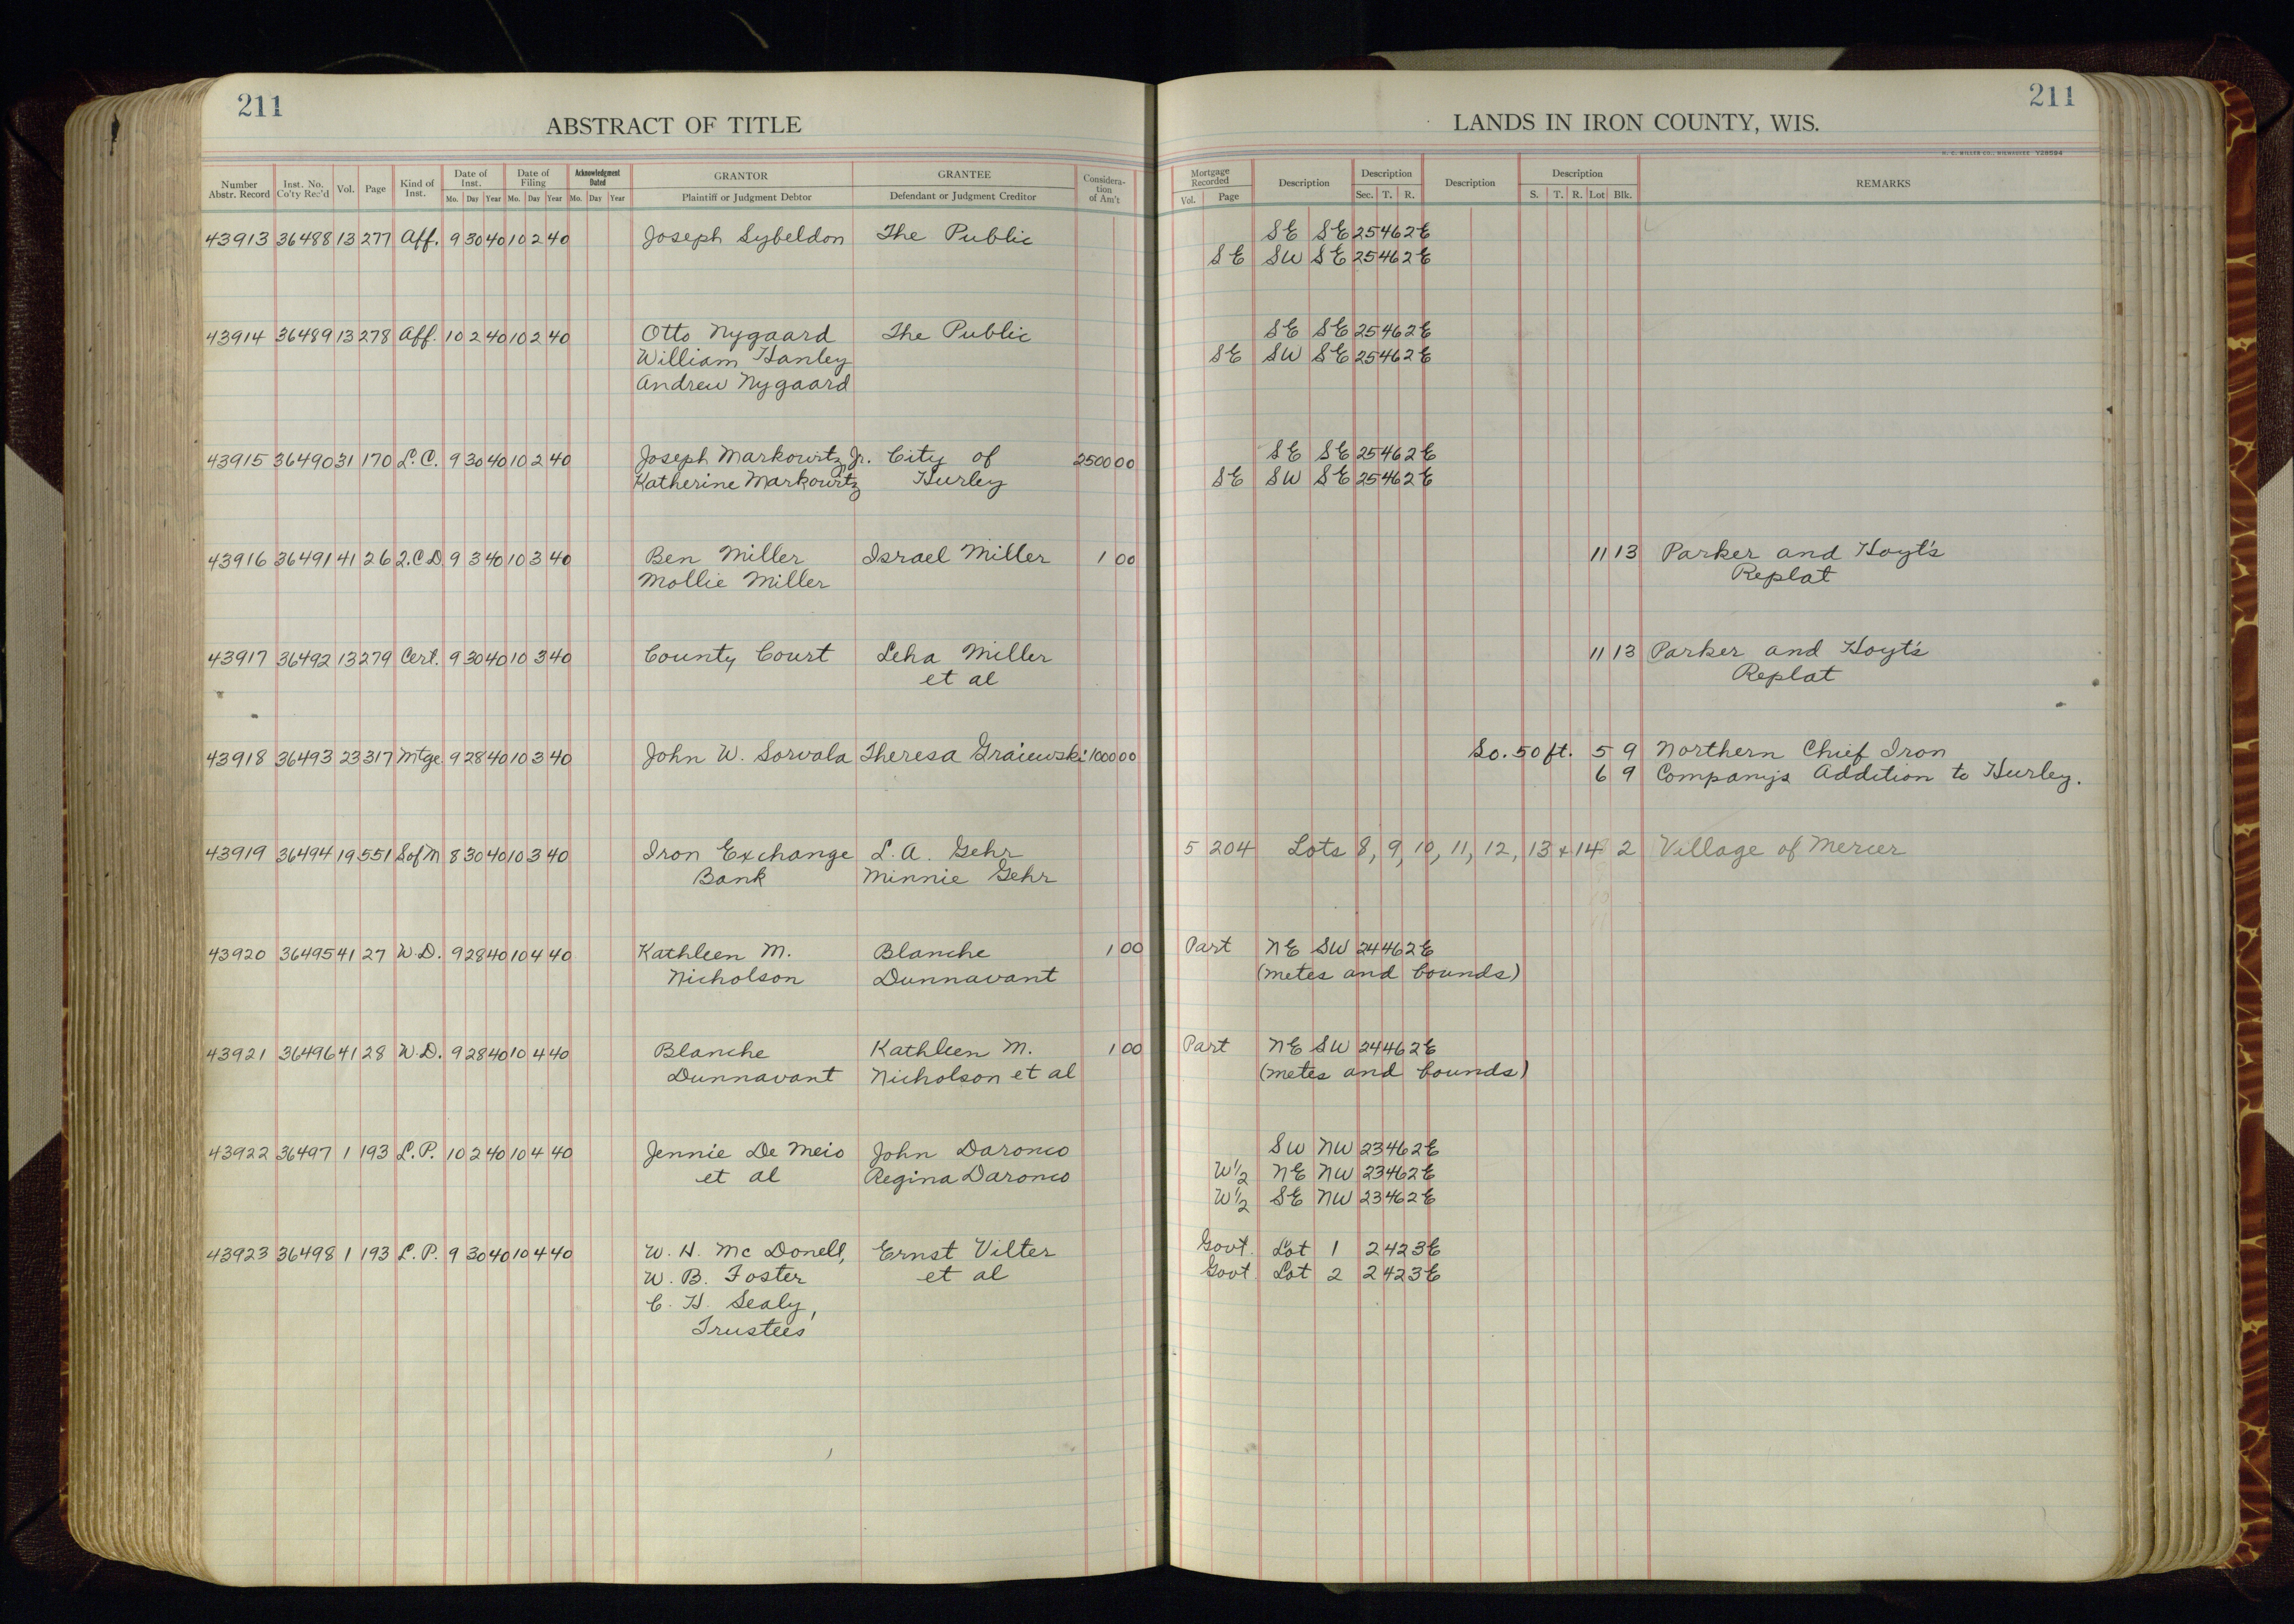 211
211
ABSTRACT OF TITLE
LANDS IN IRON COUNTY, WIS.
H. C. MILLER CO., MILWAUKEE Y28594
Number Abstr. Record Inst. No. Co'ty Rec'd Vol. Page Kind of Inst. Date of Inst. Mo. Day Year Date of Filing Mo. Day Year Acknowledgment Dated Mo. Day Year GRANTOR Plaintiff or Judgment Debtor GRANTEE Defendant or Judgment Creditor Considera-tion of Am't
Mortgage Recorded Vol. Page Description Description Sec. T. R. Description Description S. T. R. Lot Blk. REMARKS
43913 36488 13 277 Aff. 9 30 40 10 2 40 Joseph Sybeldon The Public SE SE 25 46 2E
SE SW SE 25 46 2E
43914 36489 13 278 Aff. 10 2 40 10 2 40 Otto Nygaard The Public SE SE 25 46 2E
William Hanley SE SW SE 25 46 2E
Andrew Nygaard
43915 36490 31 170 L.C. 9 30 40 10 2 40 Joseph Markowitz Jr. City of 2500 00 SE SE 25 46 2E
Katherine Markowitz Hurley SE SW SE 25 46 2E
43916 36491 41 26 Q.C.D 9 3 40 10 3 40 Ben Miller Israel Miller 1 00 11 13 Parker and Hoyt's
Mollie Miller Replat
43917 36492 13 279 Cert. 9 30 40 10 3 40 County Court Leha Miller 11 13 Parker and Hoyt's
et al Replat
43918 36493 23 317 Mtge. 9 28 40 10 3 40 John W. Sorvala Theresa Graiewski 1000 00 So. 50 ft. 5 9 Northern Chief Iron
6 9 Company's Addition to Hurley.
43919 36494 19 551 S of M 8 30 40 10 3 40 Iron Exchange L. A. Gehr 5 204 Lots 8, 9, 10, 11, 12, 13 & 14 2 Village of Mercer
Bank Minnie Gehr
43920 36495 41 27 W.D. 9 28 40 10 4 40 Kathleen M. Blanche 1 00 Part NE SW 24 46 2E
Nicholson Dunnavant (metes and bounds)
43921 36496 41 28 W.D. 9 28 40 10 4 40 Blanche Kathleen M. 1 00 Part NE SW 24 46 2E
Dunnavant Nicholson et al (metes and bounds)
43922 36497 1 193 L.P. 10 2 40 10 4 40 Jennie De Meio John Daronco SW NW 23 46 2E
et al Regina Daronco W 1/2 NE NW 23 46 2E
W 1/2 SE NW 23 46 2E
43923 36498 1 193 L.P. 9 30 40 10 4 40 W. H. Mc Donell, Ernst Vilter Govt. Lot 1 2 42 3E
W. B. Foster et al Govt. Lot 2 2 42 3E
C. H. Sealy,
Trustees